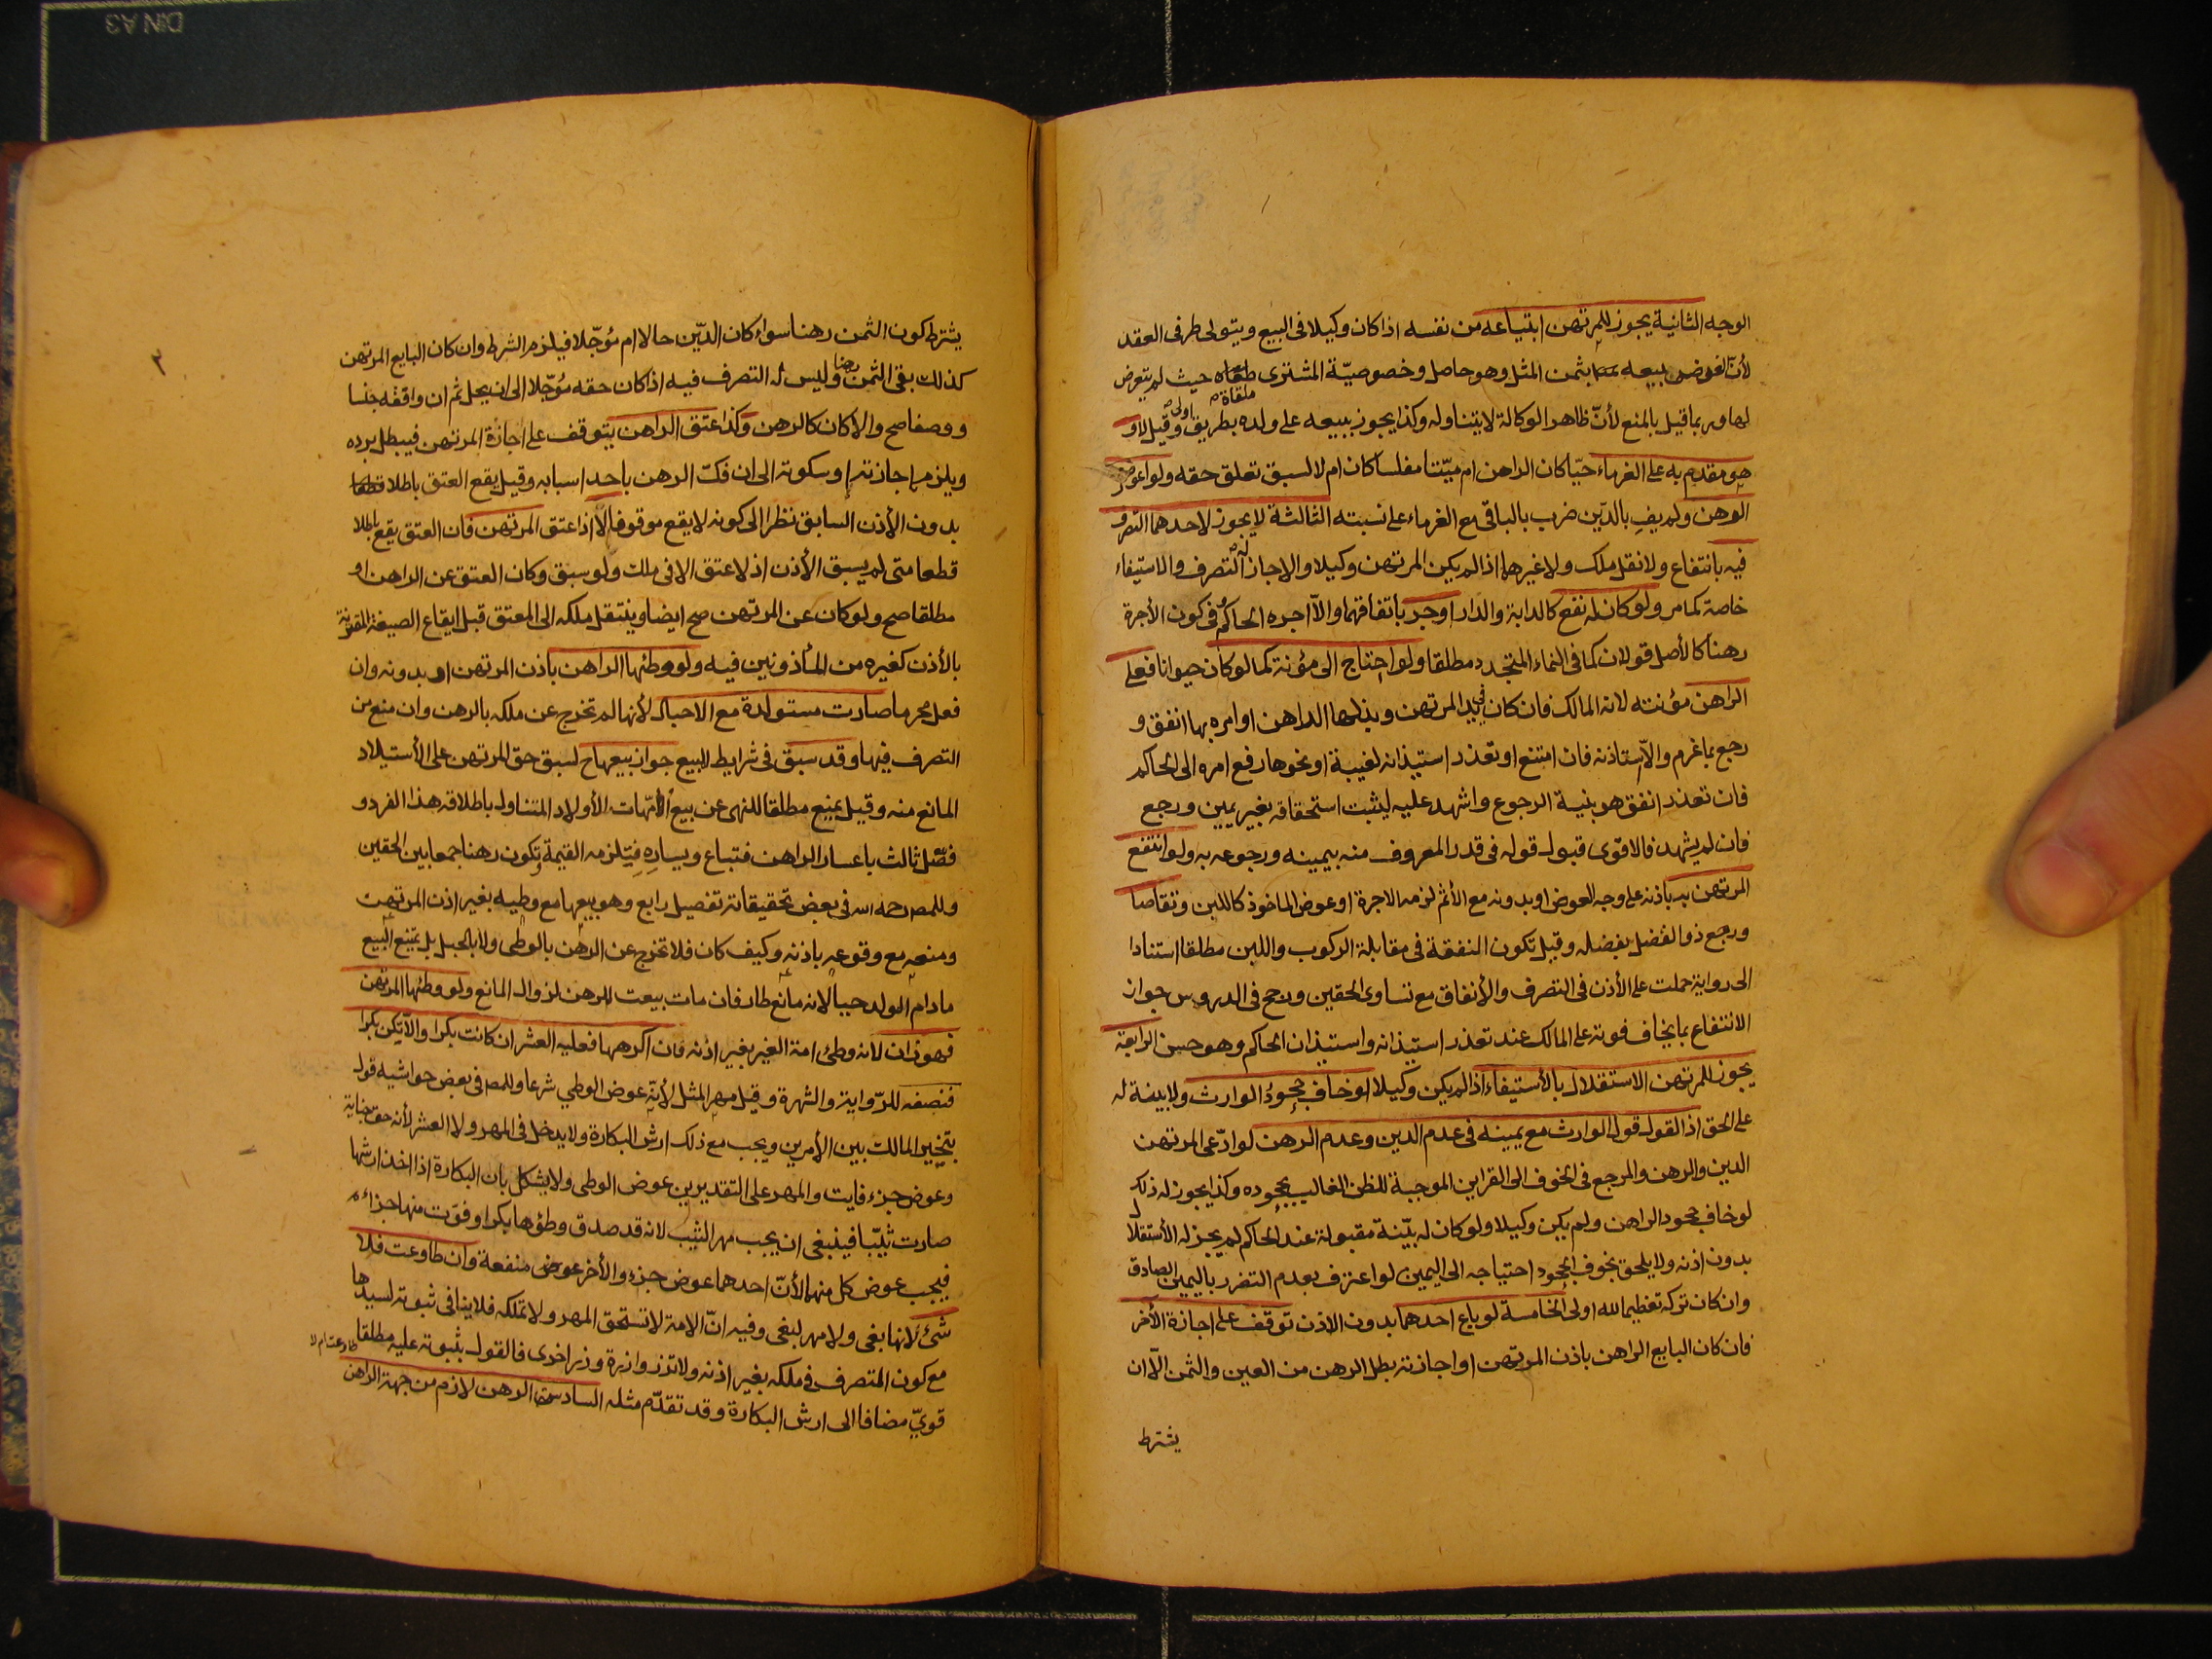 الوجه الثانية يجوز للمرتهن ابتياعه من نفسه اذا كان وكيلا في البيع ويتولى طرفى العقد
لأنّ الغرض بيعه بثمن المثل وهو حاصل وخصوصيّة المشترى ملقاة حيث لم يتعرض
لها وربما قيل بالمنع لأنّ ظاهر الوكالة لا يتناوله وكذا يجوز بيعه على ولده بطريق اولى وقيل لا و
هو مقدم به على الغرماء حيّا كان الراهن ام ميّتا مفلسا كان ام لا لسبق تعلق حقه ولو اعوز
الرهن ولم يف بالدّين ضرب بالباقى مع الغرماء على نسبته الثالثة لا يجوز لاحدهما التصرف
فيه بانتفاع ولا نقل ملك ولا غيرهما اذا لم يكن المرتهن وكيلا والا جاز له التصرف والاستيفاء
خاصة كما مر ولو كان له نفع كالدابة والدار اوجر باتفاقهما والّا اجره الحاكم وفى كون الأجرة
رهنا كالأصل قولان كما فى النماء المتجدد مطلقا ولو احتاج الى مؤنة كما لو كان حيوانا فعلى
الراهن مؤنته لانه المالك فان كان فى يد المرتهن وبذلها الراهن او امره بها انفق و
رجع بما غرم والّا استاذنه فان امتنع او تعذر استيذانه لغيبة او نحوها رفع امره الى الحاكم
فان تعذر انفق هو بنية الرجوع واشهد عليه ليثبت استحقاقه بغير يمين ورجع
فان لم يشهد فالاقوى قبول قوله فى قدر المعروف منه بيمينه ورجوعه به ولو انتفع
المرتهن به باذنه على وجه العوض او بدونه مع الأثم لزمه الاجرة او عوض الماخوذ كاللبن وتقاصا
ورجع ذو الفضل بفضله وقيل تكون النفقة فى مقابلة الركوب واللبن مطلقا استنادا
الى رواية حملت على الأذن فى التصرف والأنفاق مع تساوى الحقين ورجح فى الدروس جواز
الانتفاع بما يخاف فوته على المالك عند تعذر استيذانه واستيذان الحاكم وهو حسن الرابعة
يجوز للمرتهن الاستقلال بالأستيفاء اذا لم يكن وكيلا لو خاف جحود الوارث ولا بينة له
على الحق اذ القول قول الوارث مع يمينه فى عدم الدين وعدم الرهن لو ادّعى المرتهن
الدين والرهن والمرجع فى الخوف الى القراين الموجبة للظن الغالب بجحوده وكذا يجوز له ذلك
لو خاف جحود الراهن ولم يكن وكيلا ولو كان له بيّنة مقبولة عند الحاكم لم يجز له الأستقلال
بدون اذنه ولا يلحق بخوف الجحود احتياجه الى اليمين لو اعترف بعدم التضرر باليمين الصادق
وان كان تركه تعظيما لله اولى الخامسة لو باع احدهما بدون الاذن توقف على اجازة الأخر
فان كان البايع الراهن باذن المرتهن او اجازته بطل الرهن من العين والثمن الّا ان
يشترط
٢
يشترط كون الثمن رهنا سواء كان الدّين حالا ام مؤجّلا فيلزم الشرط وان كان البايع المرتهن
كذلك بقى الثمن رهنا وليس له التصرف فيه اذا كان حقه مؤجّلا الى ان يحل ثم ان وافقه جنسا
ووصفا صح والا كان كالرهن وكذا عتق الراهن يتوقف على اجازة المرتهن فيبطل برده
ويلزم باجازته او سكوته الى ان فك الرهن باحد اسبابه وقيل يقع العتق باطلا
بدون الأذن السابق نظرا الى كونه لا يقع موقوفا لا اذا عتق المرتهن فان العتق يقع باطلا
قطعا متى لم يسبق الأذن اذ لا عتق الا فى ملك ولو سبق وكان العتق عن الراهن او
مطلقا صح ولو كان عن المرتهن صح ايضا وينتقل ملكه الى المعتق قبل ايقاع الصيغة المقرونة
بالأذن كغيره من المأذونين فيه ولو وطئها الراهن باذن المرتهن او بدونه وان
فعل محرما صارت مستولدة مع الاحبال لأنها لم تخرج عن ملكه بالرهن وان منع من
التصرف فيها وقد سبق فى شرايط البيع جواز بيعها ح لسبق حق المرتهن على الأستيلاد
المانع منه وقيل يمنع مطلقا للنهى عن بيع الأمّهات الأولاد المتناول باطلاقه هذا الفرد و
فصّل ثالث باعسار الراهن فتباع ويساره فيلزمه القيمة وتكون رهنا جمعا بين الحقين
وللمص رحمه الله فى بعض تحقيقاته تفصيل رابع وهو بيعها مع وطيه بغير اذن المرتهن
ومنعه مع وقوعه باذنه وكيف كان فلا تخرج عن الرهن بالوطى ولا بالحبل بل يمتنع البيع
ما دام الولد حيا لانه مانع طار فان مات بيعت للرهن لزوال المانع ولو وطئها المرتهن
فهو زان لأنه وطئ امة الغير بغير اذنه فان اكرهها فعليه العشر ان كانت بكرا والّا تكن بكرا
فنصفه للرّواية والشهرة وقيل مهر المثل لأنه عوض الوطي شرعا وللمص فى بعض حواشيه قول
بتخيير المالك بين الأمرين ويجب مع ذلك ارش البكارة ولا يدخل فى المهر ولا العشر لأنه حق جناية
وعوض جزء فايت والمهر على التقديرين عوض الوطى ولا يشكل بان البكارة اذا اخذ ارشها
صارت ثيّبا فينبغى ان يجب مهر الثيب لانه قد صدق وطؤها بكرا وفوّت منها جزاءً
فيجب عوض كل منهما لأنّ احدهما عوض جزء والأخر عوض منفعة وان طاوعت فلا
شئ لانها بغى ولا مهر لبغى وفيه انّ الامة لا تستحق المهر ولا تملكه فلا ينافى ثبوته لسيدها
مع كون المتصرف فى ملكه بغير اذنه ولا تزر وازرة وزر اخرى فالقول بثبوته عليه مطلقا طاوعت ام لا
قويّ مضافا الى ارش البكارة وقد تقدّم مثله السادسة الرهن لازم من جهة الراهن